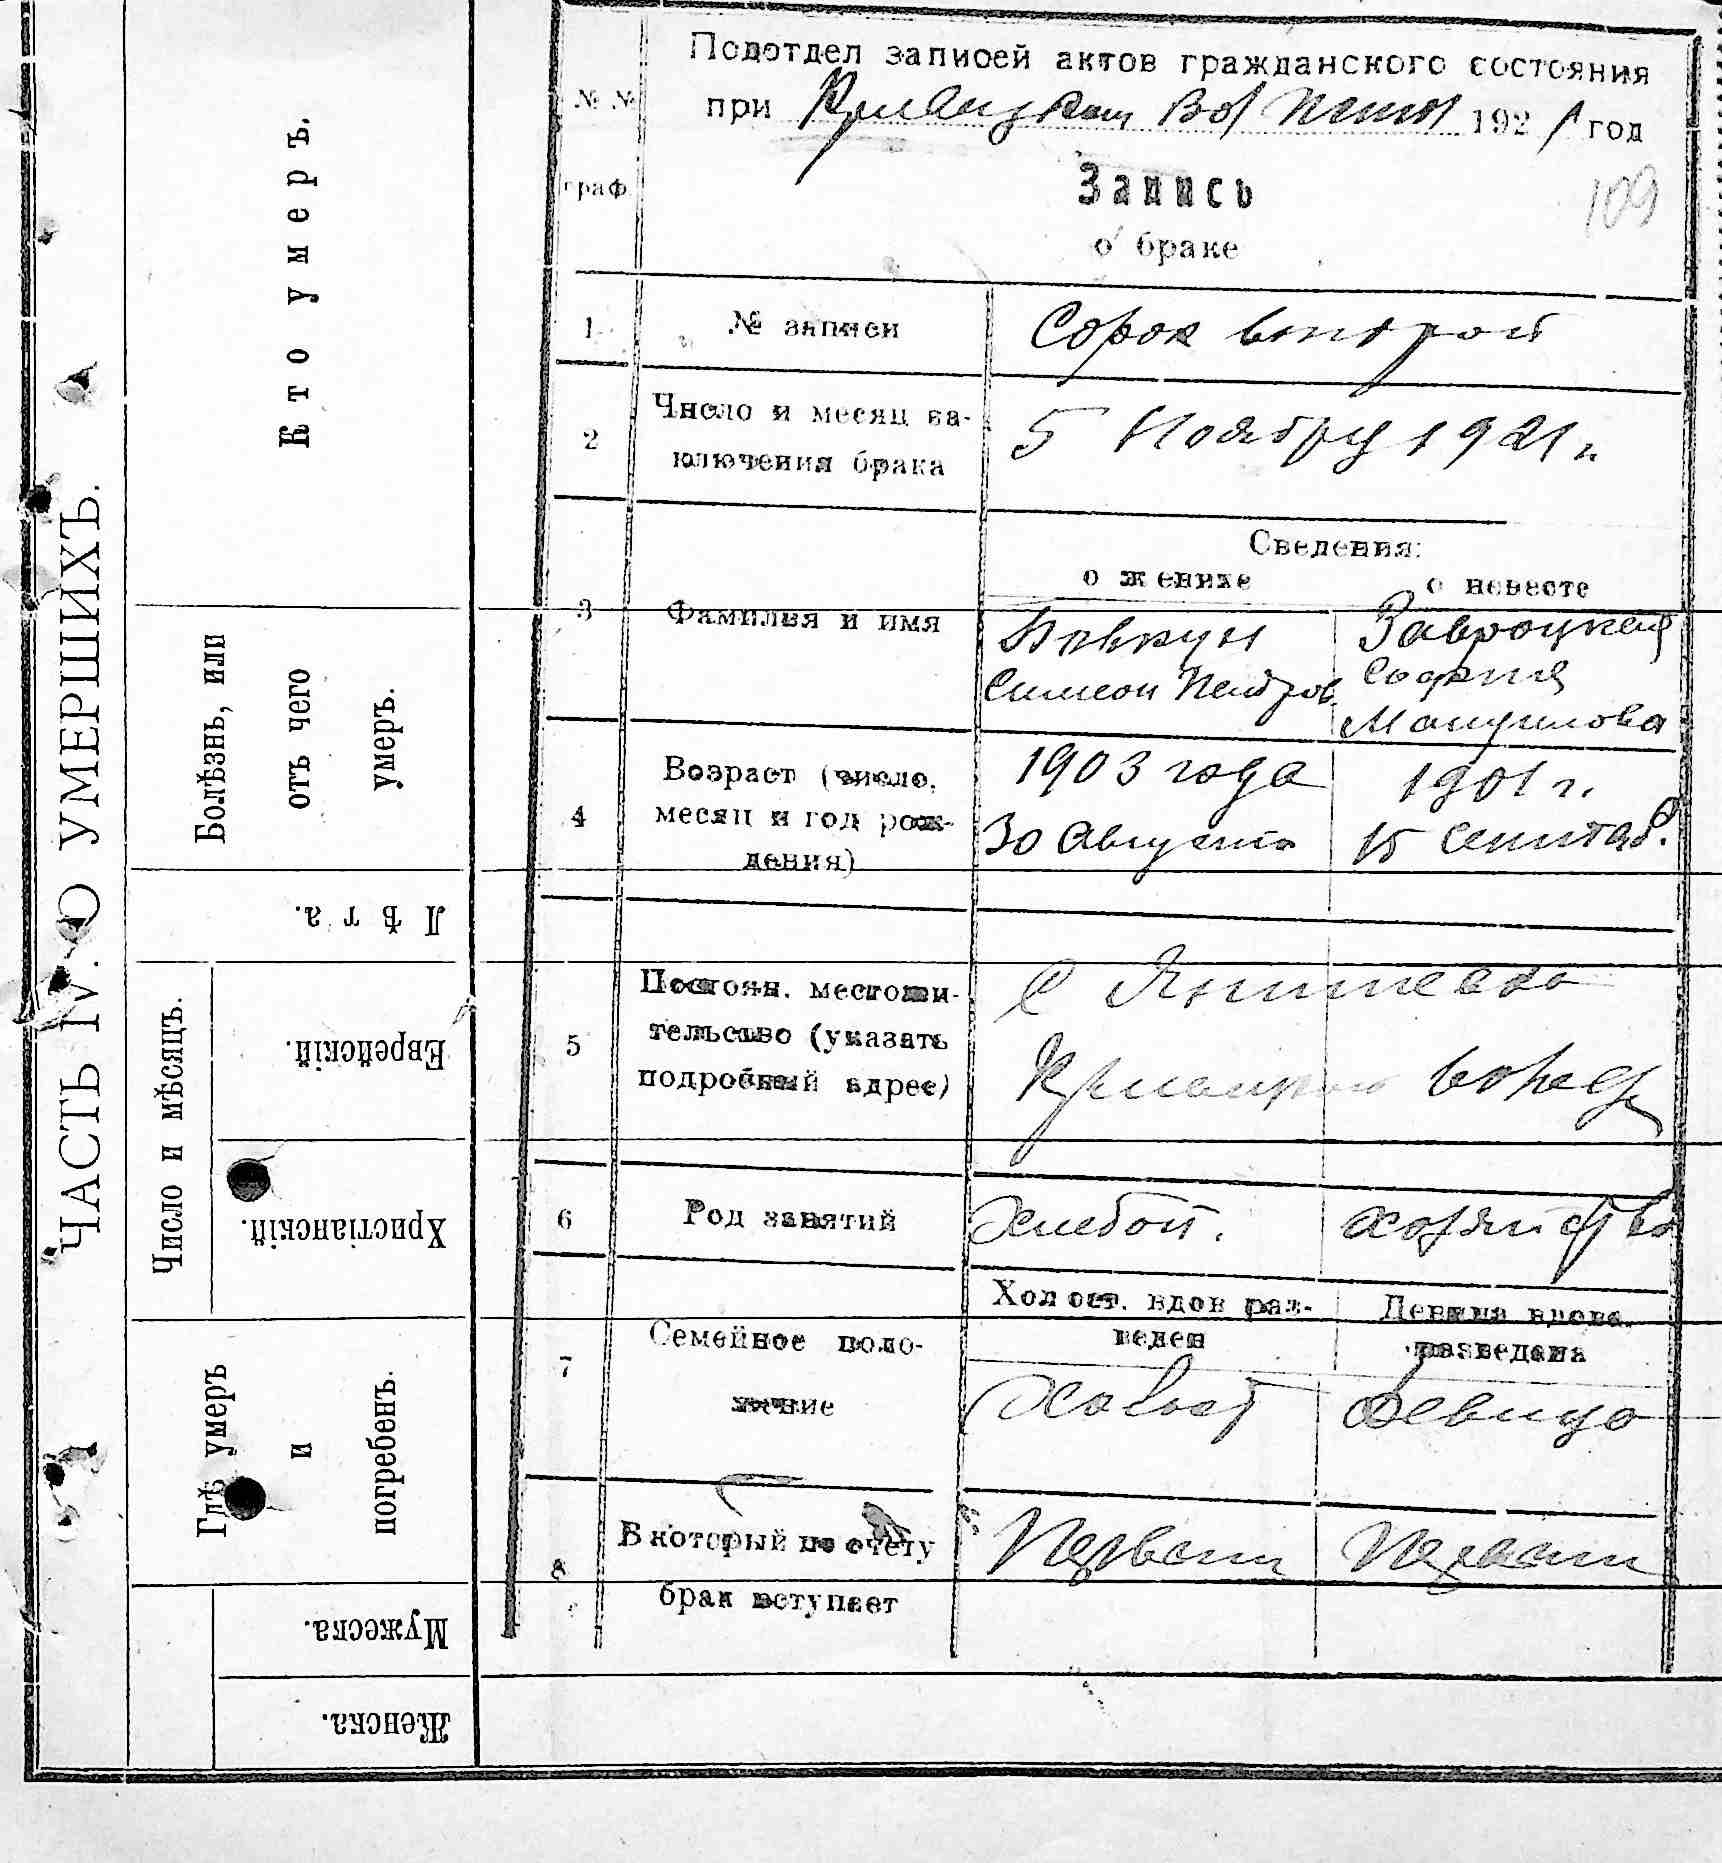 ЧАСТЬ IV. О УМЕРШИХЪ.
Кто умеръ.
Болѣзнь, или
отъ чего
умеръ.
Лѣта.
Число и мѣсяцъ.
Еврейскій.
Христіанскій.
Гдѣ умеръ
и
погребенъ.
Мужеска.
Женска.
№ №
граф
Подотдел записей актов гражданского состояния
при Вол 1921 год
109
Запись
о браке
1 № записи Сорок второй
2 Число и месяц за-
ключения брака
5 Ноября 1921 г.
Сведения:
о женихе о невесте
3 Фамилия и имя
Симеон Петров
Завроцкая
София
Мануилова
4 Возраст (число,
месяц и год рож-
дения)
1903 года
30 Августа
1901 г.
15 Сентяб.
5 Постоян. местожи-
тельство (указать
подробный адрес)
с
волости
6 Род занятий Хлебоп. хозяйство
7 Семейное поло-
жение
Холост. вдов раз-
веден
Девица вдова.
разведена
Холост Девица
8 В который по счету
брак вступает
Первый Первый